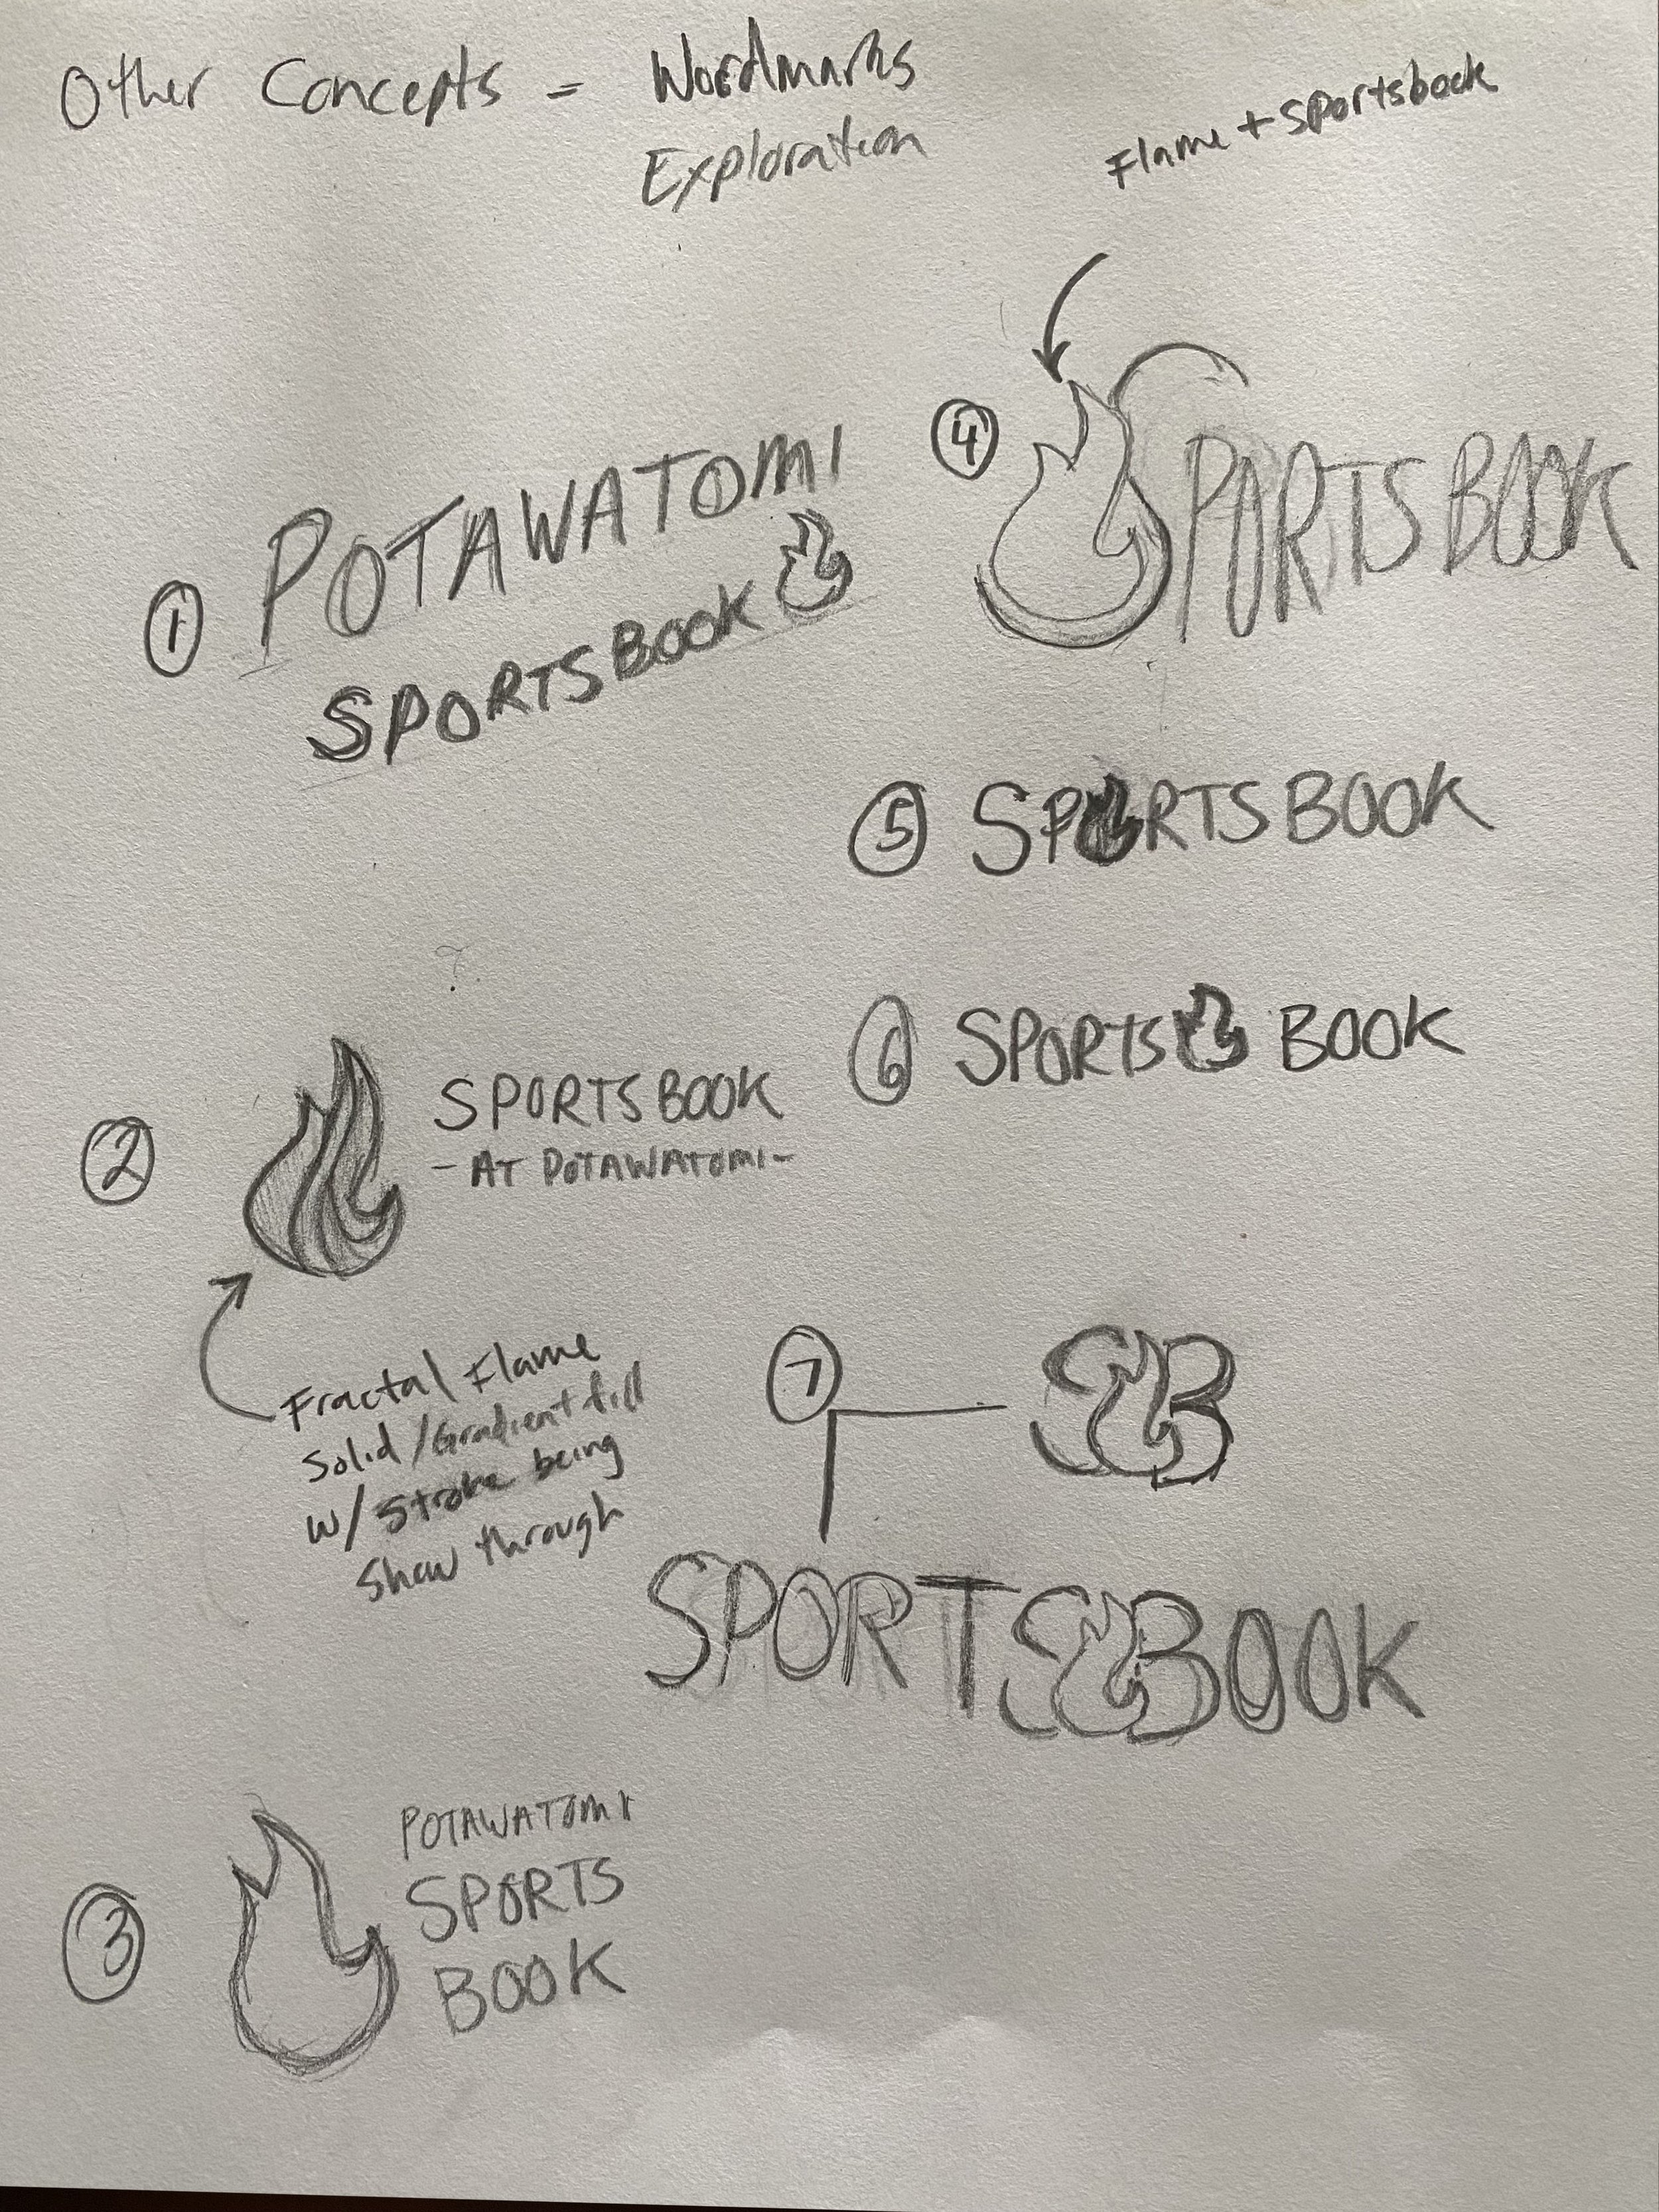 Other Concepts = Wordmarks
Exploration
Flame + Sportsbook
1 POTAWATOMI
SPORTSBOOK
4 SPORTSBOOK
5 SPORTSBOOK
6 SPORTS BOOK
2 SPORTSBOOK
- AT POTAWATOMI -
?
Fractal Flame
Solid/Gradient fill
w/ stroke being
Show through
7 SB
SPORTSBOOK
3 POTAWATOMI
SPORTS
BOOK